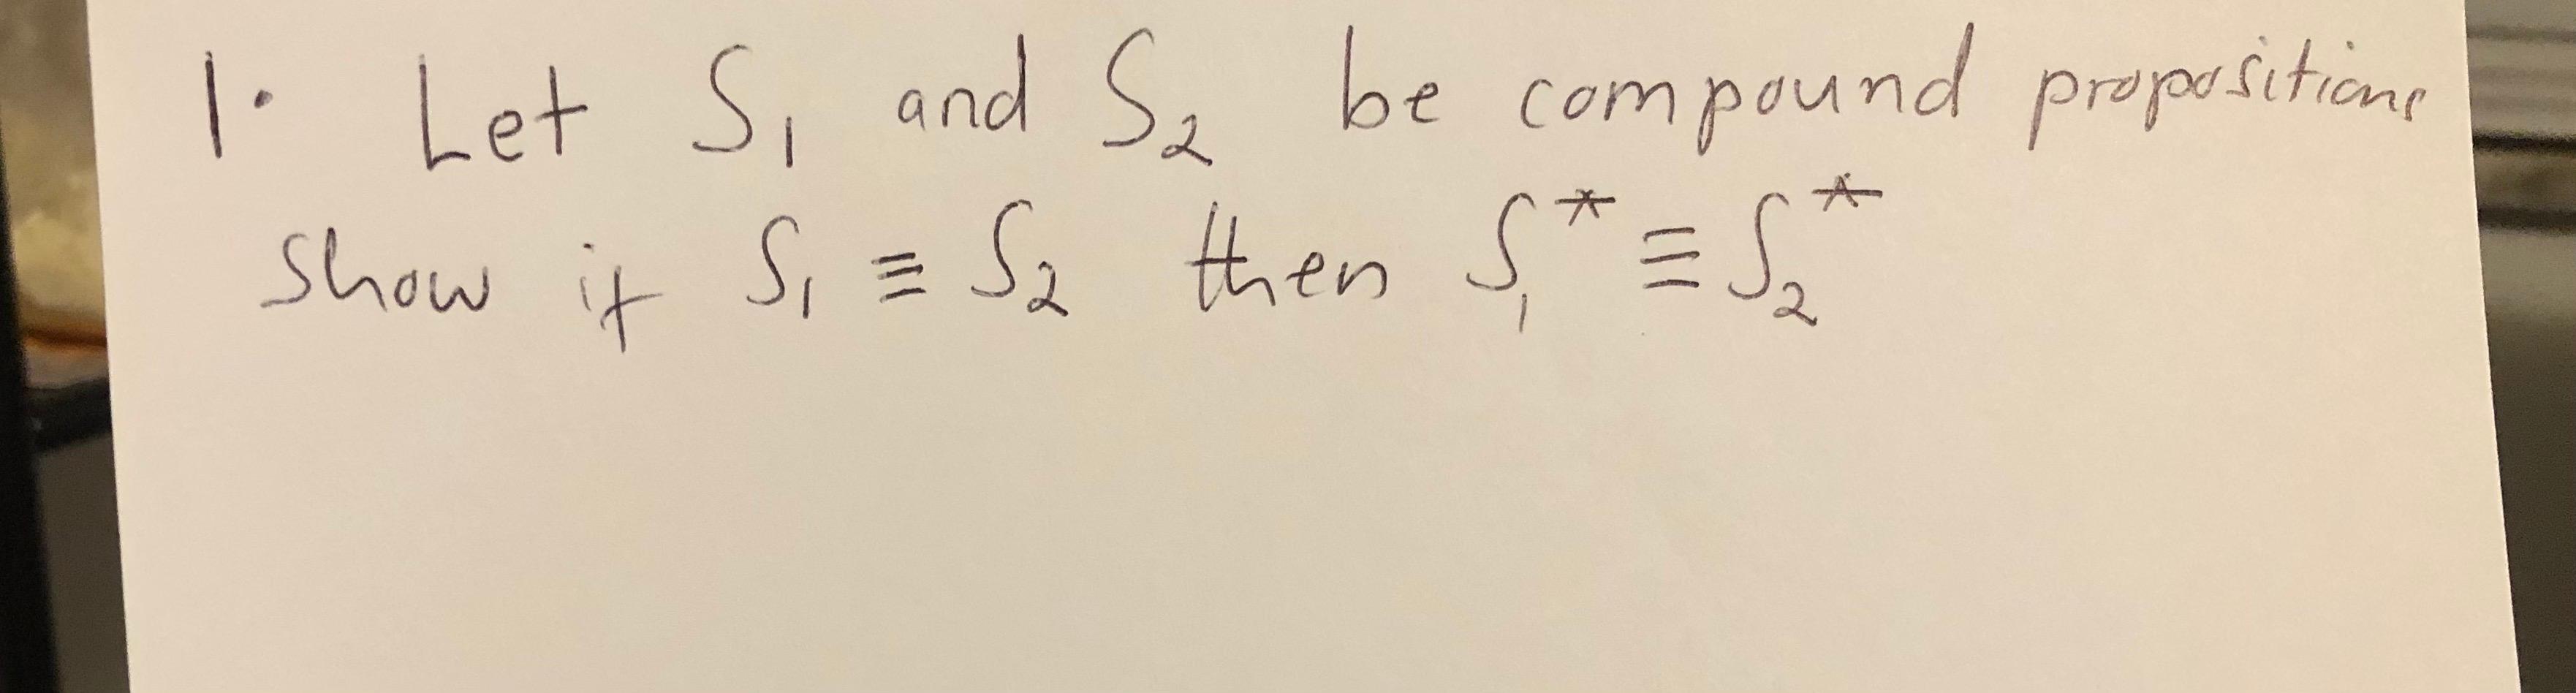 1. Let S₁ and S₂ be compound propositions
show if S₁ ≡ S₂ then S₁* ≡ S₂*